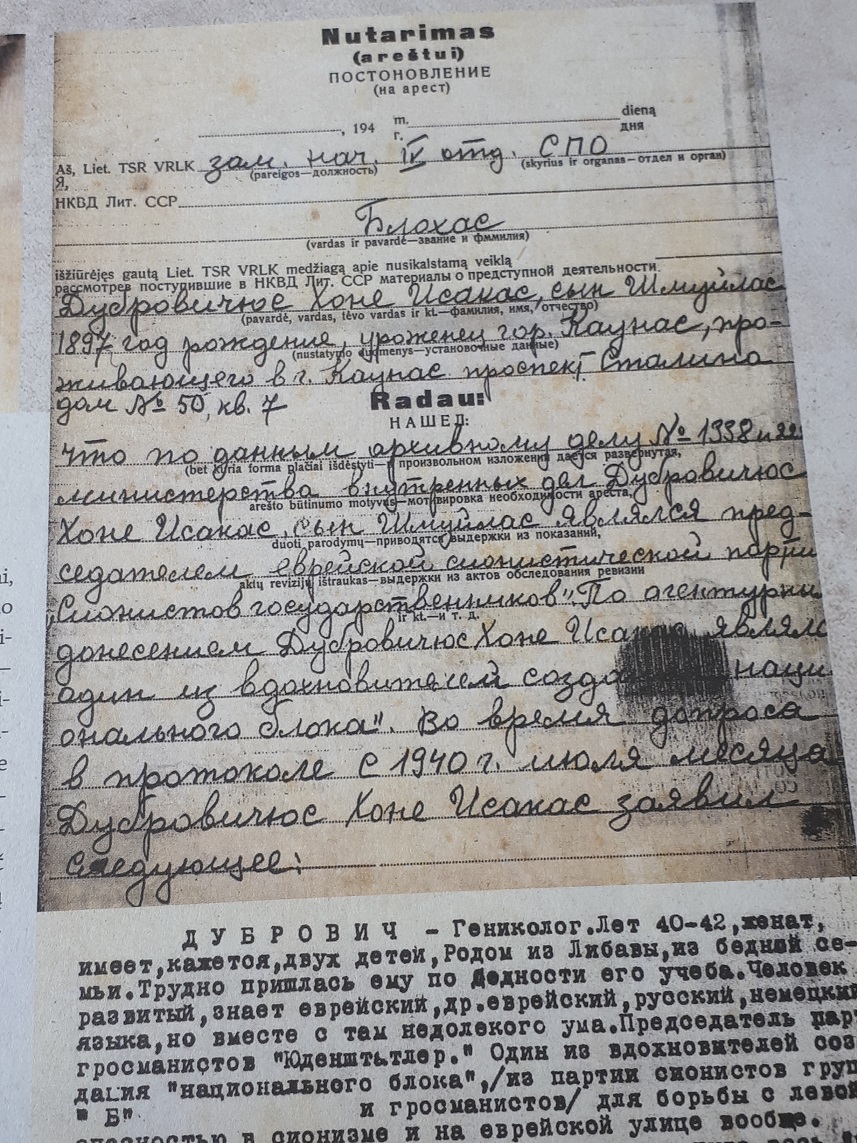 Nutarimas
(areštui)
ПОСТОНОВЛЕНИЕ
(на арест)
, 194 m. dieną
г. дня
Aš, Liet. TSR VRLK зам. нач. IV отд. СПО
Я, (pareigos—должность) (skyrius ir organas—отдел и орган)
НКВД Лит. ССР
Блохас
(vardas ir pavardė—звание и фммилия)
išžiūrėjęs gautą Liet. TSR VRLK medžiagą apie nusikalstamą veiklą
рассмотрев поступившие в НКВД Лит. ССР материалы о предступной деятельности.
Дубровичюс Хоне Исакас, сын Шмуйлас
(pavardė, vardas, tėvo vardas ir kt.—фамилия, имя, отчество)
1897 год рождение, уроженец гор. Каунас, про-
(nustatymo duomenys—установочные данные)
живающего в г. Каунас проспект Сталина
дом № 50, кв. 7
Radau:
НАШЕЛ:
что по данным архивному делу № 1338
(bet kuria forma plačiai išdėstyti—в произвольном изложении дается развернутая,
министерства внутренных дел Дубровичюс
arešto būtinumo motyvas—мотивировка необходимости ареста,
Хоне Исакас, сын Шмуйлас являлся пред-
duoti parodymų—приводятся выдержки из показаний,
седателем еврейской сионистической партии
aktų revizijų ištraukas—выдержки из актов обследования ревизии
„Сионистов государственников". По агентурны
ir kt.—и т. д.
донесением Дубровичюс Хоне Исакас являлс
один из вдохновителей созда наци
онального блока". Во время допроса
в протоколе с 1940 г. июля месяца
Дубровичюс Хоне Исакас заявил
следующее:
ДУБРОВИЧ – Гениколог.Лет 40-42,женат,
имеет,кажется,двух детей,Родом из Либавы,из бедной се-
мьи.Трудно пришлась ему по бедности его учеба.Человек
развитый,знает еврейский,др.еврейский,русский,немецкий
языка,но вместе с там недолекого ума.Председатель парт
гросманистов "Юденштьтлер." Один из вдохновителей соз
дация "национального блока",/из партии сионистов груп
" Б" и гросманистов/ для борьбы с левой
опасностью в сионизме и на еврейской улице вообще.